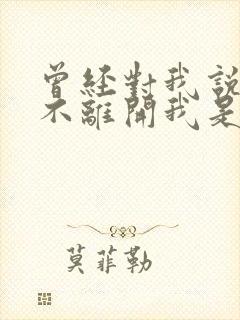 曾经對我説
不離開我是
莫菲勒